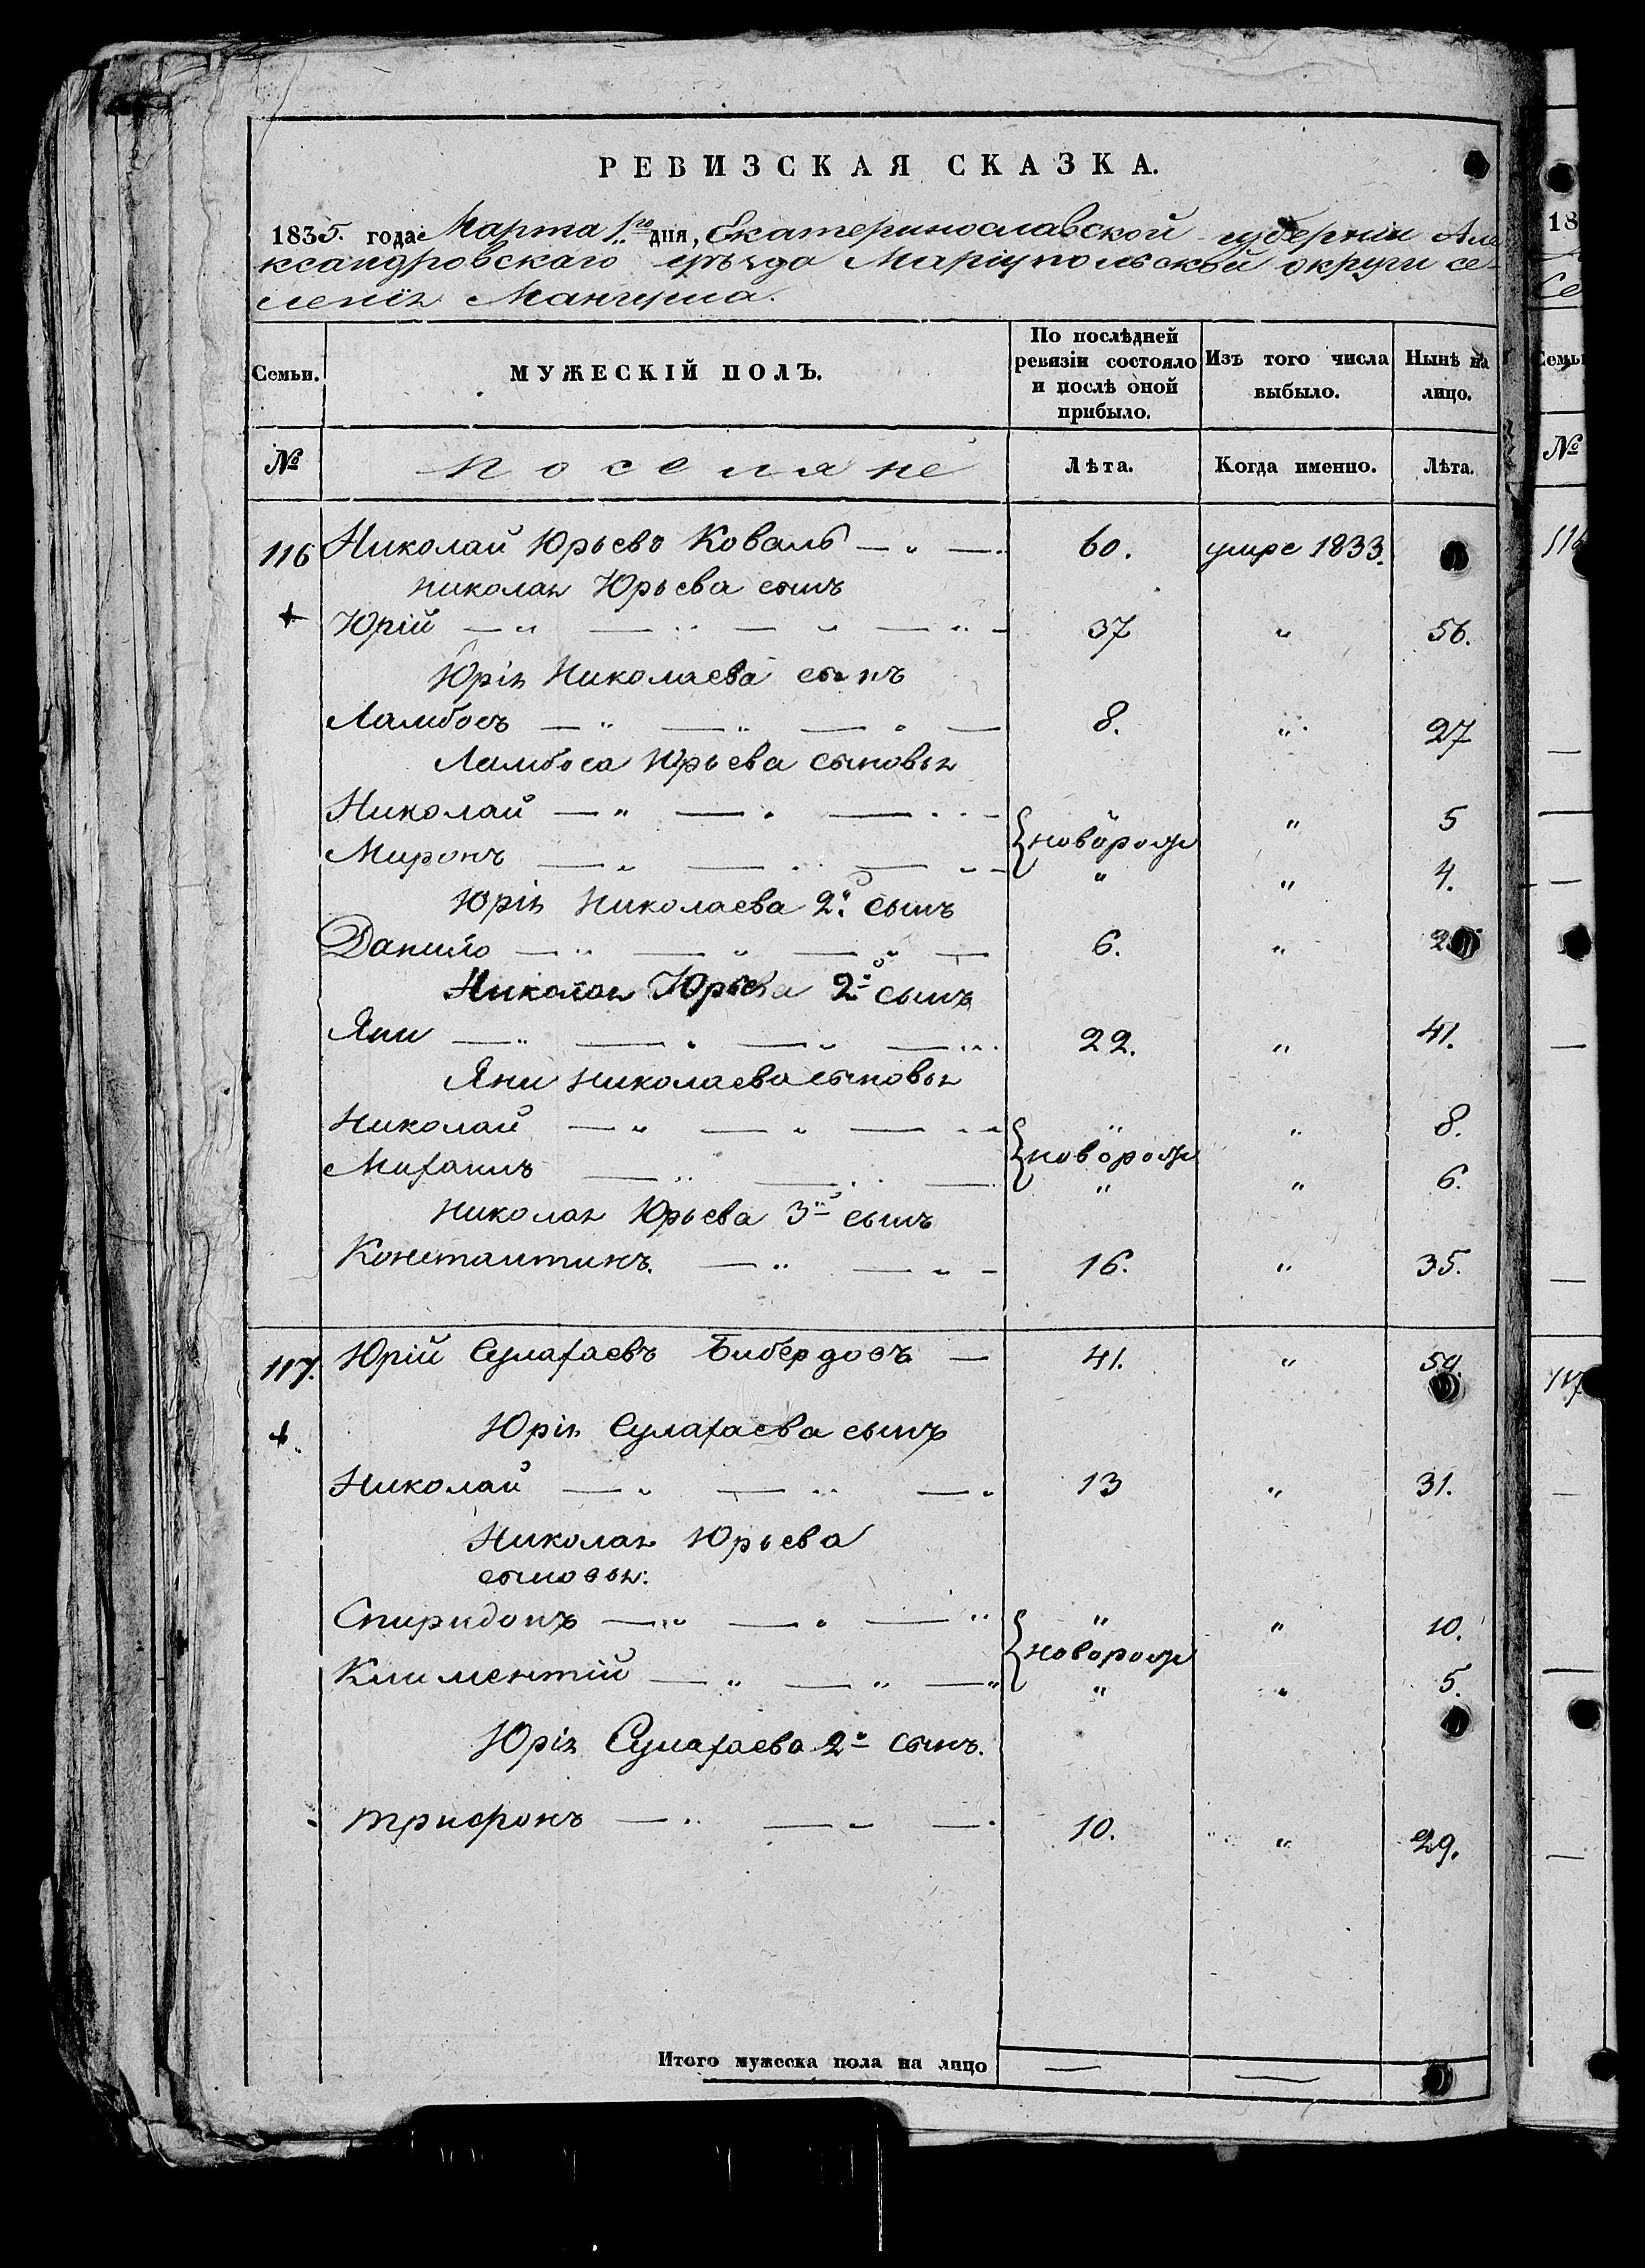 РЕВИЗСКАЯ СКАЗКА.
1835. года Марта 1го дня, Екатеринославской губерніи Але
ксандровскаго уѣзда Маріупольской округи се-
ленія Мангуша.
Семьи. МУЖЕСКІЙ ПОЛЪ. По послѣдней ревизіи состояло и послѣ оной прибыло. Изъ того числа выбыло. Нынѣ на лицо.
№ Поселяне Лѣта. Когда именно. Лѣта.
116 Николай Юрьевъ Коваль — " — 60. умре 1833.
Николая Юрьева сынъ
Юрій — " — " — " — " — 37 " 56.
Юрія Николаева сынъ
Ламбосъ — " — " — " — 8. " 27
Ламбоса Юрьева сыновья
Николай — " — " — " — новорожд " 5
Миронъ — " — " — " — " " 4.
Юрія Николаева 2й сынъ
Данило — " — " — " — 6. " 25
Николая Юрьева 2й сынъ
Яни — " — " — " — " 22. " 41.
Яни Николаева сыновья
Николай — " — " — " новорожд " 8.
Михаилъ — " — " — " " 6.
Николая Юрьева 3й сынъ
Константинъ. — " — " — 16. " 35.
117. Юрій Сулахаевъ Бибердозъ — 41. " 59.
Юрія Сулахаева сынъ
Николай — " — " — " 13 " 31.
Николая Юрьева
сыновья:
Спиридонъ — " — " — " новорожд " 10.
Климентій — " — " — " " " 5.
Юрія Сулахаева 2й сынъ.
Трифонъ — " — " — " 10. " 29.
Итого мужеска пола на лицо — —
18
Се
Семьи
№
116
117